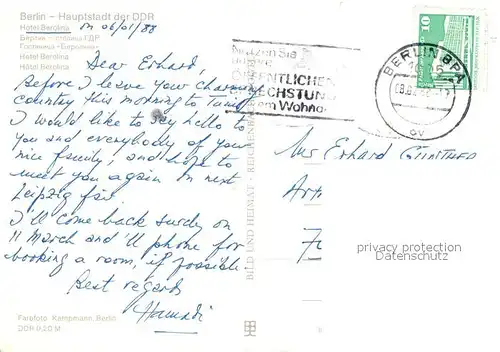 Berlin – Hauptstadt der DDR
Hotel Berolina on 06/01/88
Берлин – столица ГДР
Гостиница "Беролина"
Hotel Berolina
Hôtel Berolina
Dear Erhard,
Before I leave your charming
country this morning to
I would like to say hello to
you and everybody of your
nice family, and hope to
meet you again in next
Leipzig fair.
I'll come back surely on
11 March and 'll phone for
booking a room, if possible
Best regards
Hamadi
Farbfoto Kampmann, Berlin
DDR 0,20 M
BILD UND HEIMAT
Nutzen Sie
ENTLICHEN
ECHSTUN
em Wohn
BERLIN BPA
10
Erhard GÜNTHER
privacy protection
Datenschutz